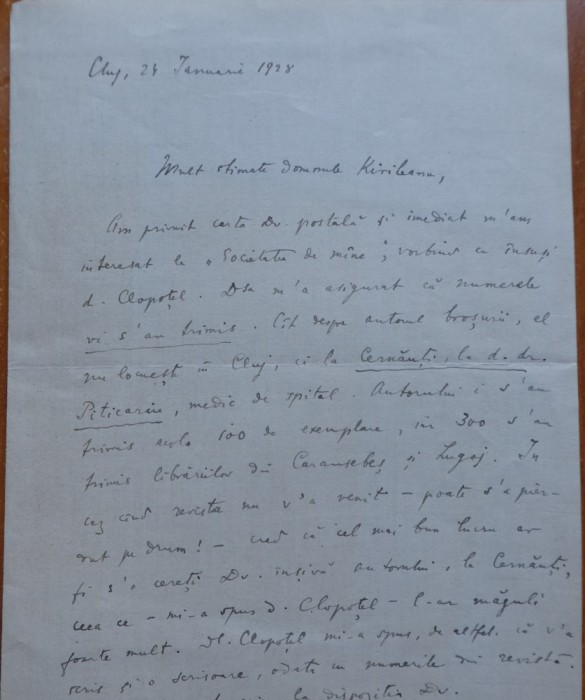 Cluj, 24 Ianuarie 1928
Mult stimate domnule Kirileanu,
Am primit carta Dv. poștală și imediat m'am
interesat la „Societatea de mîne”, vorbind cu însuși
d. Clopoțel. Dsa m'a asigurat că numerele
vi s'au trimis. Cît despre autorul broșurii, el
nu locuește în Cluj, ci la Cernăuți, la d. dr.
Piticariu, medic de spital. Autorului i s'au
trimis acolo 500 de exemplare, iar 300 s'au
trimis librăriilor din Caransebeș și Lugoj. In
caz cînd revista nu v'a venit – poate s'a pier-
dut pe drum! – cred că cel mai bun lucru ar
fi s'o cereți Dv. înșivă autorului, la Cernăuți,
ceea ce – mi-a spus d. Clopoțel – l-ar măguli
foarte mult. Dl. Clopoțel mi-a spus, de altfel, că v'a
scris și o scrisoare, odată cu numerile din revistă.
la dispoziția Dv.